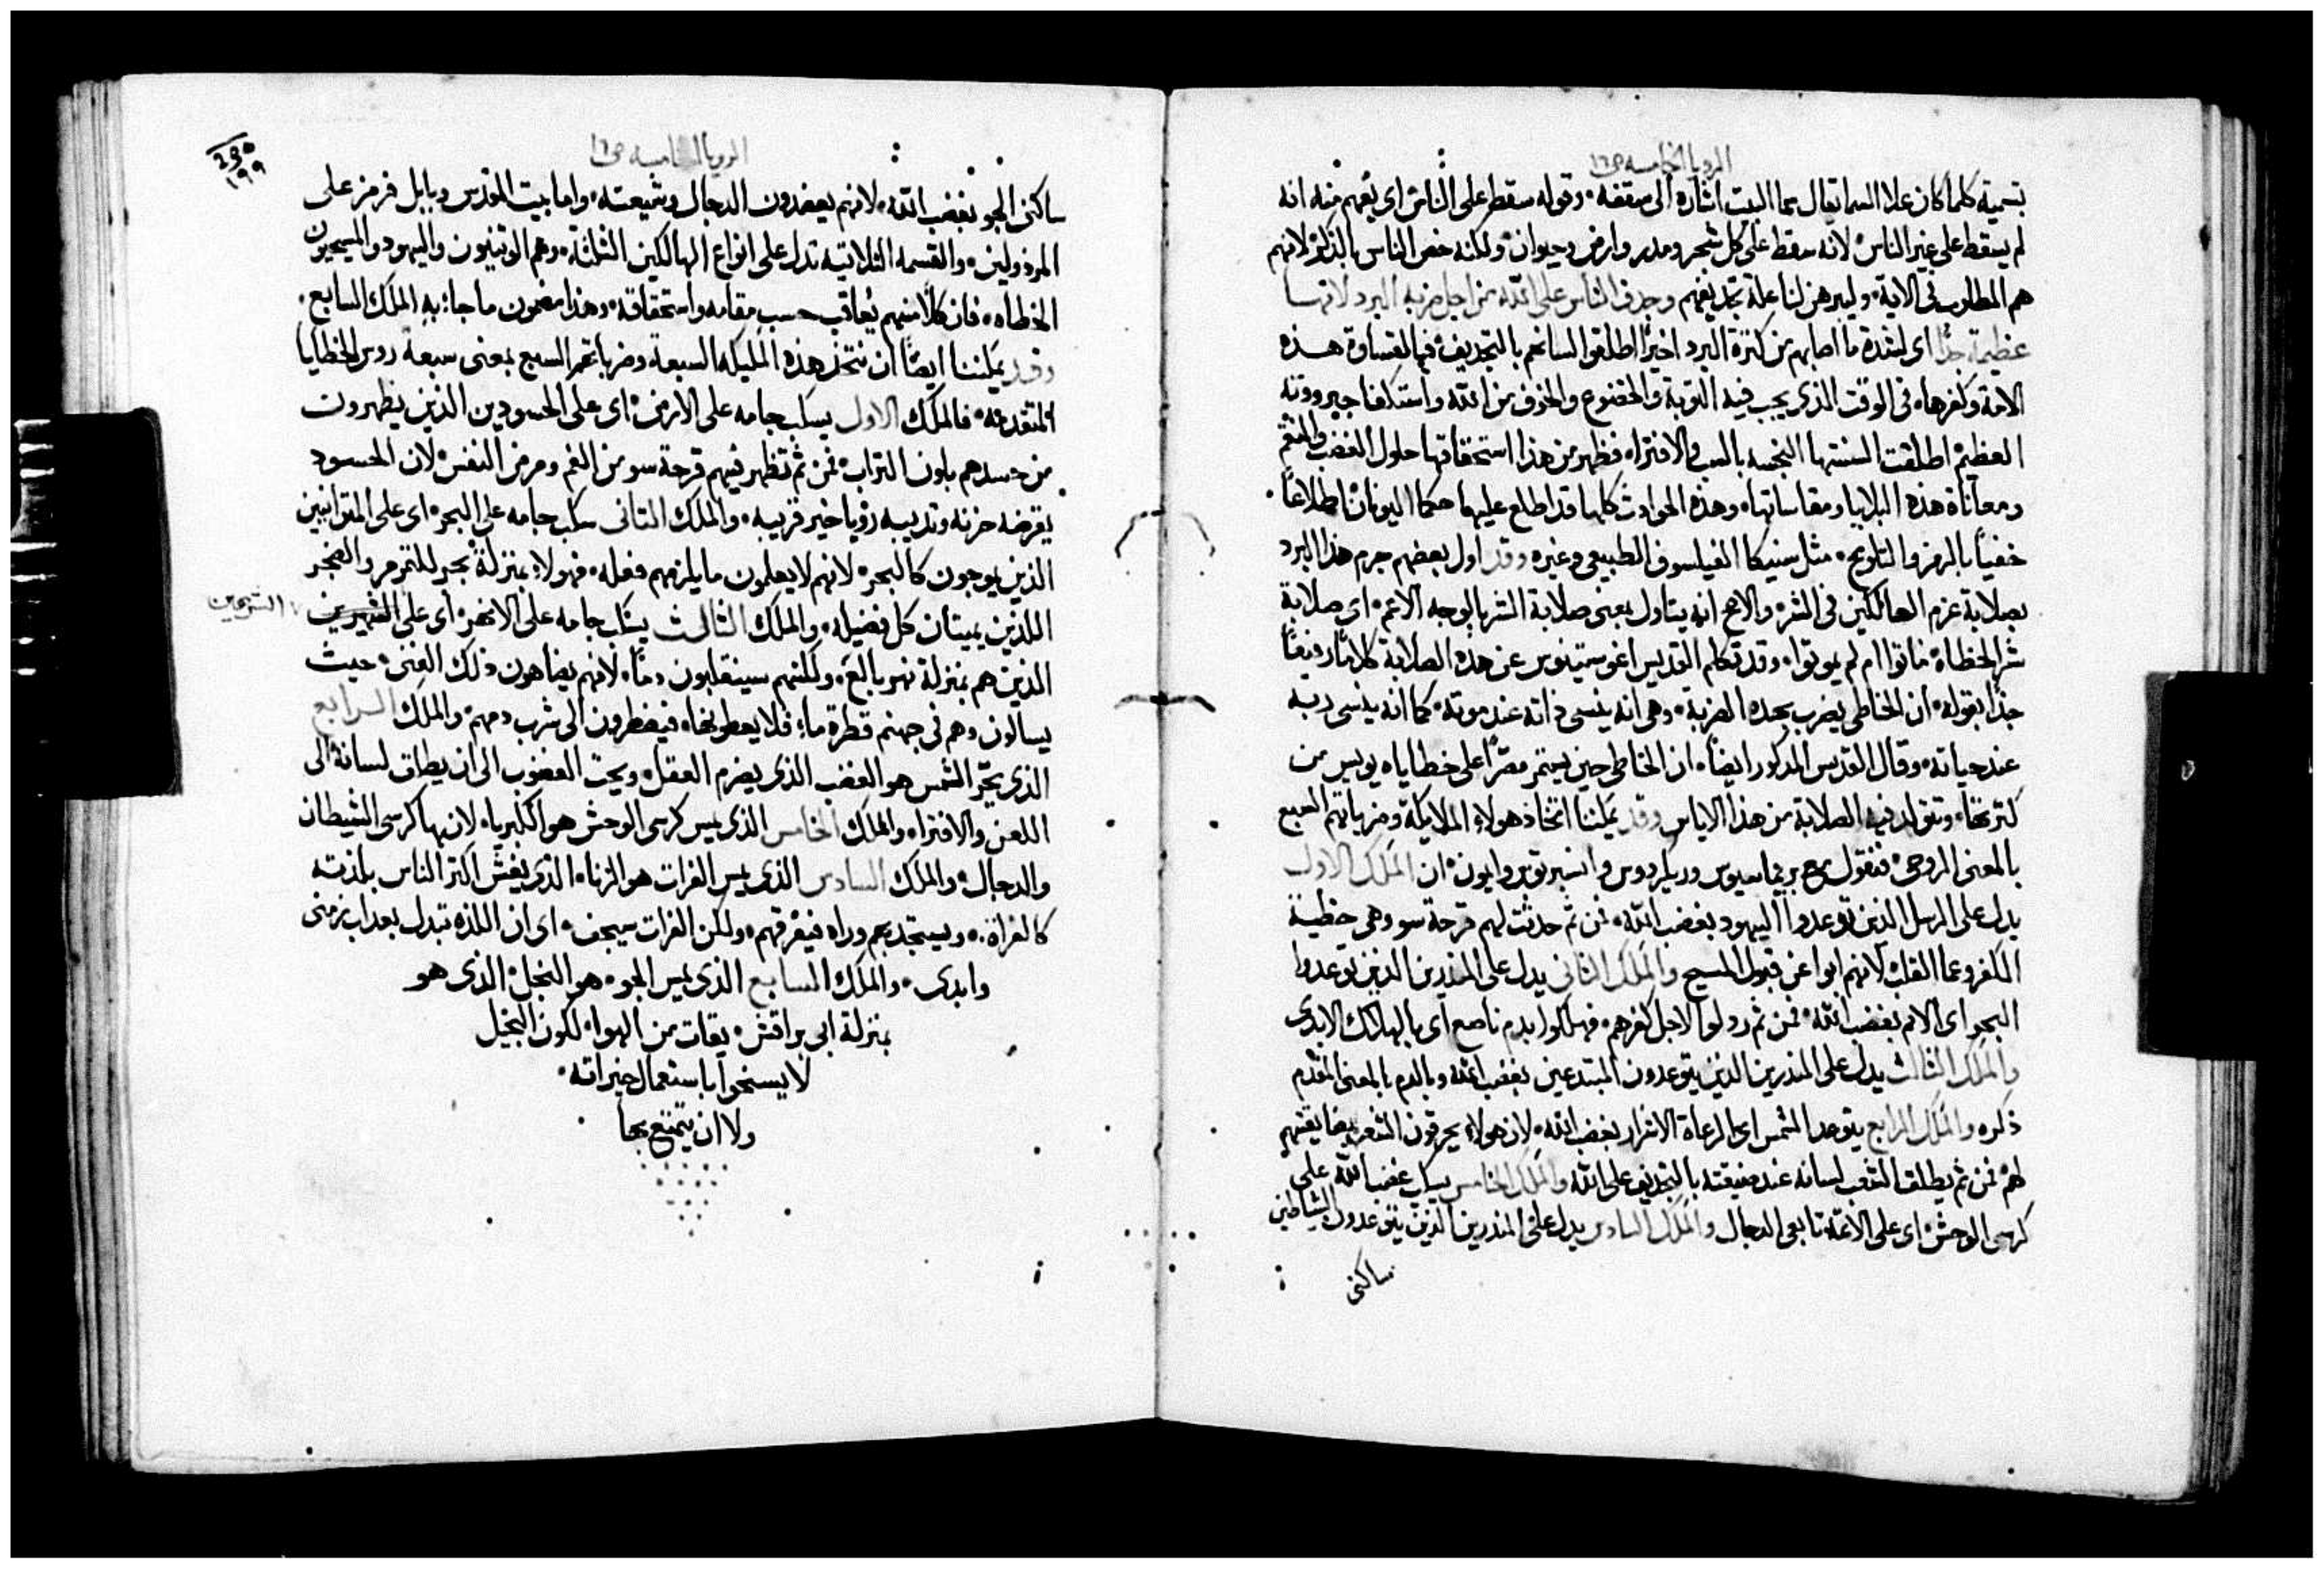 الرويا الخامسه ص١٦
بتسمية كلما كان علا السما تقال سما البيت اشارة الى سقفه وقوله سقط على الناس اى يفهم منه انه
لم يسقط على غير الناس لانه سقط على كل شجر ومدر وارض وحيوان ولكنه خص الناس بالذكر لانهم
هم المطلوب فى الاية وليبرهن لنا علة تجديفهم وجدف الناس على الله من اجل ضربة البرد لانها
عظيمة جدًا اى لشدة ما اصابهم من كثرة البرد اخيرًا اطلقوا السانهم بالتجديف فيا لقساوة هذه
الامة وكفرها فى الوقت الذى يجب فيه التوبة والخضوع والخوف من الله واستكفا جبرووته
العظيم اطلقت السنتها النجسه بالسب والافتراء فظهر من هذا استحقاقها حلول الغضب والنقم
ومعاناة هذه البلايا ومقاساتها وهذه الحوادث كلها قد اطلع عليها حكما اليونان اطلاعًا
خفيًا بالرمز والتلويح مثل سنيكا الفيلسوف الطبيعى وغيره وقد اول بعضهم جرم هذا البرد
بصلابة عزم الهالكين فى الشر والاصح انه يتاول بمعنى صلابة الشر بالوجه الاعم اى صلابة
شر الخطاة ماتوا ام لم يموتوا وقد تكلم القديس اغوستينوس عن هذه الصلابة كلامًا رفيعًا
جدًا بقوله ان الخاطى يضرب بهذه الضربة وهى انه ينسى ذاته عند موته كما انه ينسى ربه
عند حياته وقال القديس المذكور ايضًا ان الخاطى حين يستمر مصرًا على خطاياه يويس من
كثرتها وتتولد فيه الصلابة من هذا الاياس وقد يمكننا اتخاذ هولاء الملايكة وضرباتهم السبع
بالمعنى الروحى فنقول مع بريماسيوس وريكاردوس وانسبرتوس وايون ان الملك الاول
يدل على الرسل الذين توعدوا اليهود بغضب الله فمن ثم حدثت لهم قرحة سو وهى خطية
الكفر وعما القلب لانهم ابوا عن قبول المسيح والملك الثانى يدل على المنذرين الذين توعدوا
البحر اى الامم بغضب الله فمن ثم رذلوا لاجل كفرهم فهلكوا بدم ناصع اى بالهلاك الابدى
والملك الثالث يدل على المنذرين الذين يتوعدون المبتدعين بغضب الله وبالدم بالمعنى المقدم
ذكره والملك الرابع يتوعد الشمس اى الرعاة الاشرار بغضب الله لان هولاء يحرقون الشعب
لهم فمن ثم يطلق الشعب لسانه عند ضيقته بالتجديف على الله والملك الخامس يسكب غضب الله على
كرسى الوحش اى على الايمة تابعى الدجال والملك السادس يدل على المنذرين الذين يتوعدون الشياطين
ساكنى
الرويا الخامسه ص١٦
٢٩٥
١٩٩
ساكنى الجو بغضب الله لانهم يعضدون الدجال وشيعته واما بيت المقدس وبابل فرمز على
المرذولين والقسمه الثلاثيه تدل على انواع الهالكين الثلثة وهم الوثنيون واليهود والمسيحيون
الخطاه فان كلًا منهم يُعاقب حسب مقامه واستحقاقه وهذا مضمون ما جاء به الملك السابع
وقد يمكننا ايضًا ان نتخذ هذه المليكه السبعة وضرباتهم السبع بمعنى سبعة روس الخطايا
المتقدمة فالملك الاول يسكب جامه على الارض اى على الحسودين الذين يظهرون
من حسدهم بلون التراب فمن ثم تظهر فيهم قرحة سو من الغم ومرض النفس لان الحسود
يقرضه حزنه وتذيبه رؤيا خير قريبه والملك الثانى سكب جامه على البحر اى على المتوانيين
الذين يوجون كالبحر لانهم لا يعلمون ما يلزمهم فعله فهولاء بمنزلة بحر للتمرمر والضجر
اللذين يميتان كل فضيله والملك الثالث يسكب جامه على الانهر اى على الشهرين
الشرهين
الذين هم بمنزلة نهر بالع ولكنهم سينقلبون دمًا لانهم يضاهون ذلك الغنى حيث
يسالون وهم فى جهنم قطرة ماء فلا يعطونها فيضطرون الى شرب دمهم والملك الرابع
الذى يحرّ الشمس هو الغضب الذى يضرم العقل ويحث الغضوب الى ان يطلق لسانه الى
اللعن والافتراء والملك الخامس الذى يمس كرسى الوحش هو الكبرياء لان بها كرسى الشيطان
والدجال والملك السادس الذى يمس الفرات هو الزناء الذى يغش اكثر الناس بلذته
كالفراة ويستجذبهم وراه فيغرقهم ولكن الفرات سيجف اى ان اللذه تبدل بعذاب زمنى
وابدى والملك السابع الذى يمس الجو هو البخل الذى هو
بمنزلة ابى براقش يقات من الهوا لكون البخيل
لا يسخوا باستعمال خيراته
ولا ان يتمتع بها